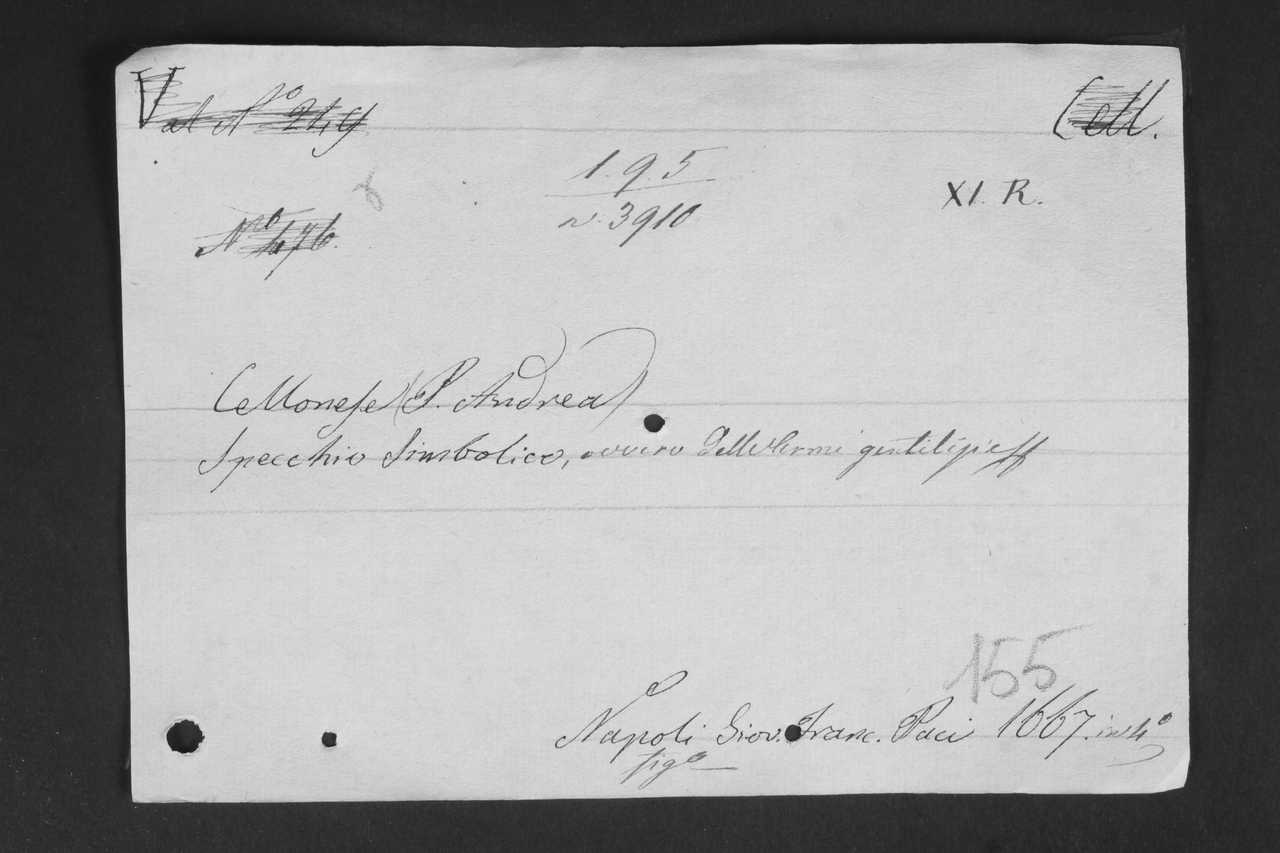 Val N.º 249
Cell.
1. 9. 5
n. 3910
XI. R.
N.ro 476.
Cellonese (P. Andrea)
Specchio Simbolico, ovvero Delle Armi gentilizie
155
Napoli Giov. Franc. Paci 1667. in 4º
figº